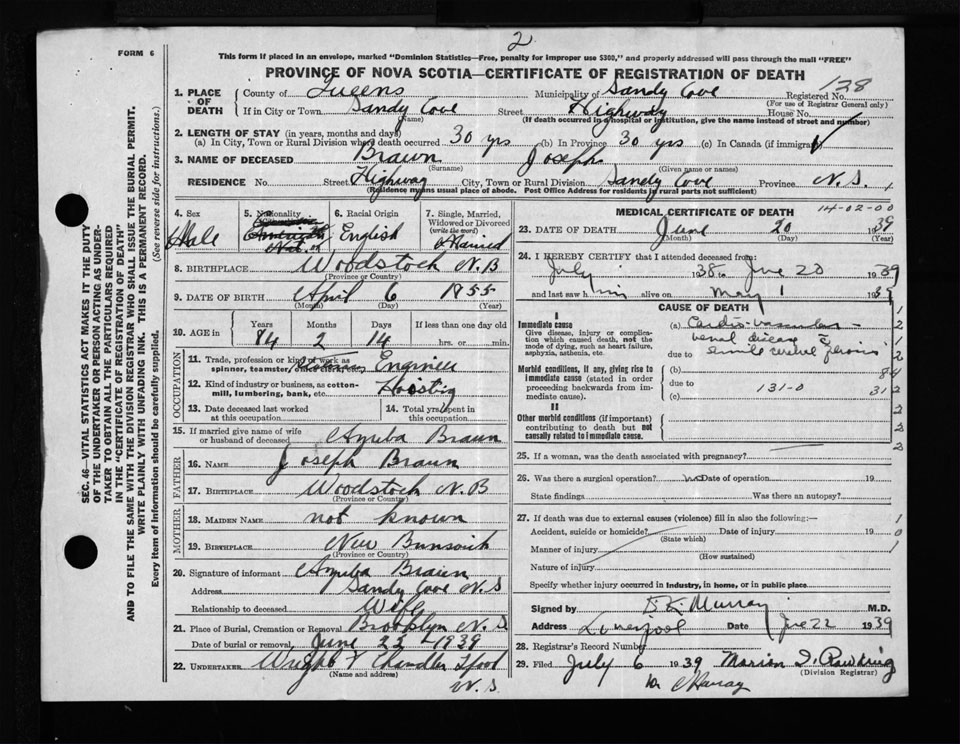 2
FORM 6
This form if placed in an envelope, marked "Dominion Statistics—Free, penalty for improper use $300," and properly addressed will pass through the mail "FREE"
PROVINCE OF NOVA SCOTIA—CERTIFICATE OF REGISTRATION OF DEATH
128
1. PLACE OF DEATH County of Queens Municipality of Sandy Cove Registered No.
(For use of Registrar General only)
If in City or Town Sandy Cove Street Highway House No.
(Name) (If death occurred in a hospital or institution, give the name instead of street and number)
2. LENGTH OF STAY (in years, months and days)
(a) In City, Town or Rural Division where death occurred 30 yrs (b) In Province 30 yrs (c) In Canada (if immigrant)
3. NAME OF DECEASED Brawn Joseph
(Surname) (Given name or names)
RESIDENCE No. Street Highway City, Town or Rural Division Sandy Cove Province N.S.
(Residence means usual place of abode. Post Office Address for residents in rural parts not sufficient)
SEC. 46—VITAL STATISTICS ACT MAKES IT THE DUTY
OF THE UNDERTAKER OR PERSON ACTING AS UNDER-
TAKER TO OBTAIN ALL THE PARTICULARS REQUIRED
IN THE "CERTIFICATE OF REGISTRATION OF DEATH"
AND TO FILE THE SAME WITH THE DIVISION REGISTRAR WHO SHALL ISSUE THE BURIAL PERMIT.
WRITE PLAINLY WITH UNFADING INK. THIS IS A PERMANENT RECORD.
Every item of information should be carefully supplied. (See reverse side for instructions.)
4. Sex Male
5. Nationality
6. Racial Origin English
7. Single, Married, Widowed or Divorced (write the word) Married
8. BIRTHPLACE Woodstock N.B
(Province or Country)
9. DATE OF BIRTH April 6 1855
(Month) (Day) (Year)
10. AGE in Years Months Days If less than one day old
84 2 14 hrs. or min.
OCCUPATION
11. Trade, profession or kind of work as spinner, teamster, Engineer
12. Kind of industry or business, as cotton-mill, lumbering, bank, etc. Hoisting
13. Date deceased last worked at this occupation
14. Total yrs. spent in this occupation
15. If married give name of wife or husband of deceased Brawn
FATHER
16. NAME Joseph Brawn
17. BIRTHPLACE Woodstock N.B
(Province or Country)
MOTHER
18. MAIDEN NAME not known
19. BIRTHPLACE New Bunswick
(Province or Country)
20. Signature of informant Brawn
Address Sandy Cove N.S
Relationship to deceased Wife
21. Place of Burial, Cremation or Removal Brooklyn N.S.
Date of burial or removal June 22 1939
22. UNDERTAKER Wright & Chandler L'pool
(Name and address)
N.S.
MEDICAL CERTIFICATE OF DEATH 14-02-00
23. DATE OF DEATH June 20 1939
(Month) (Day) (Year)
24. I HEREBY CERTIFY that I attended deceased from:
July 1938 to June 20 1939
and last saw him alive on May 1 1939
CAUSE OF DEATH
I
Immediate cause
Give disease, injury or complication which caused death, not the mode of dying, such as heart failure, asphyxia, asthenia, etc.
(a) Cardio-vascular-
renal disease
due to
Morbid conditions, if any, giving rise to immediate cause (stated in order proceeding backwards from immediate cause).
(b)
due to 131-0
(c)
II
Other morbid conditions (if important) contributing to death but not causally related to immediate cause.
25. If a woman, was the death associated with pregnancy?
26. Was there a surgical operation? no Date of operation 19
State findings Was there an autopsy?
27. If death was due to external causes (violence) fill in also the following:—
Accident, suicide or homicide? Date of injury 19
(State which)
Manner of injury
(How sustained)
Nature of injury
Specify whether injury occurred in industry, in home, or in public place
Signed by Murray M.D.
Address Liverpool Date June 22 1939
28. Registrar's Record Number
29. Filed July 6 1939 Marion
(Division Registrar)